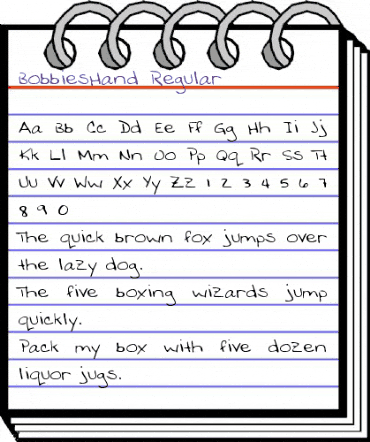 BobbiesHand Regular
Aa Bb Cc Dd Ee Ff Gg Hh Ii Jj
Kk Ll Mm Nn Oo Pp Qq Rr Ss Tt
Uu Vv Ww Xx Yy Zz 1 2 3 4 5 6 7
8 9 0
The quick brown fox jumps over
the lazy dog.
The five boxing wizards jump
quickly.
Pack my box with five dozen
liquor jugs.